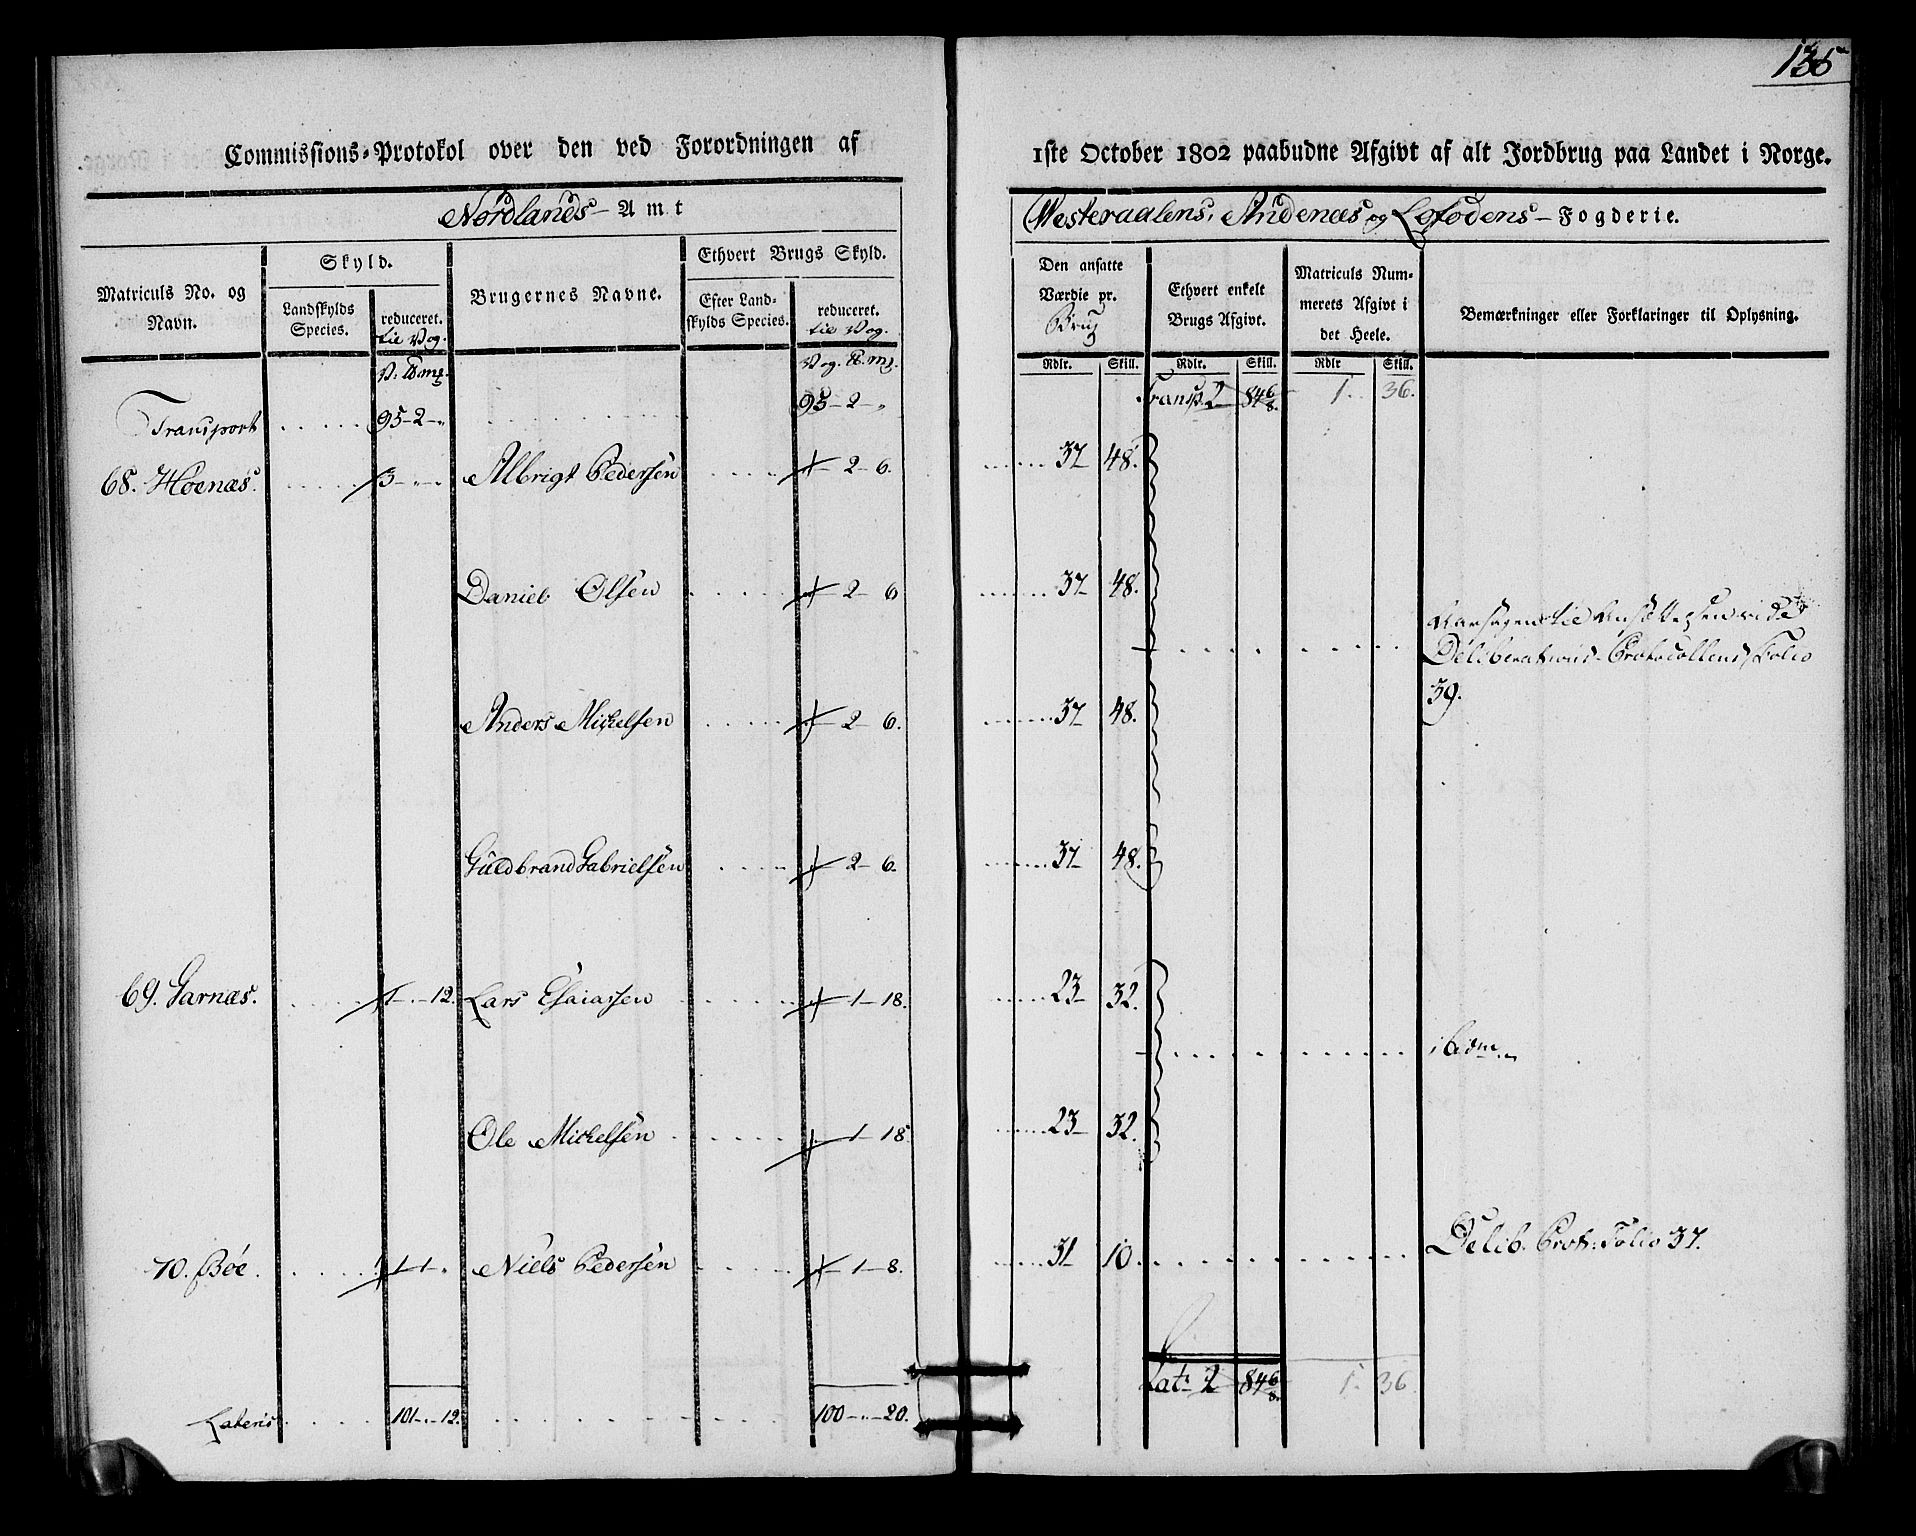 135
Commissions-Protokol over den ved Forordningen af
1ste October 1802 paabudne Afgivt af alt Jordbrug paa Landet i Norge.
Nordlands - Amt
Westeraalens, Andenæs og Lofodens - Fogderie.
Matriculs No. og Navn.
Skyld.
Landskylds Species.
reduceret. til Vog.
Brugernes Navne.
Ethvert Brugs Skyld.
Efter Landskylds Species.
reduceret. til Vog.
Den ansatte Værdie pr. Brug
Ethvert enkelt Brugs Afgivt.
Matriculs Nummerets Afgivt i det Heele.
Bemærkninger eller Forklaringer til Oplysning.
Rdlr. Skill. Rdlr. Skill. Rdlr Skill.
Transport 95-2-" 95-2-" Transp. 2 84 6/8. 1. 36.
68. Høenæs. 3-"-" Albrigt Pedersen 2-6. 37 48.
Daniel Olsen 2-6 37 48.
Aarsagen til Ansættelsen vide
Deliberations-Protocollens Folio
39.
Anders Michelsen 2-6. 37 48.
Guldbrand Gabrielsen 2-6. 37 48.
69. Garnæs. 1-"-12. Lars Esaiassen 1-18. 23 32.
ibidm
Ole Michelsen 1-18. 23 32.
70. Bøe. 1-1-" Niels Pedersen 1-8. 31 10.
Delib. Prot. Folio 37.
Lateris 101-"-12. 100-"-20. Lat. 2 84 6/8. 1. 36